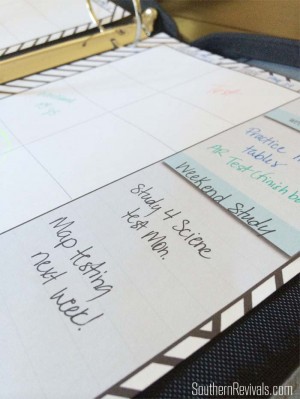 Practice
tables
AR Test (finish
Weekend Study
Study 4 Sciene
test Mon.
Map testing
next week!
SouthernRevivals.com